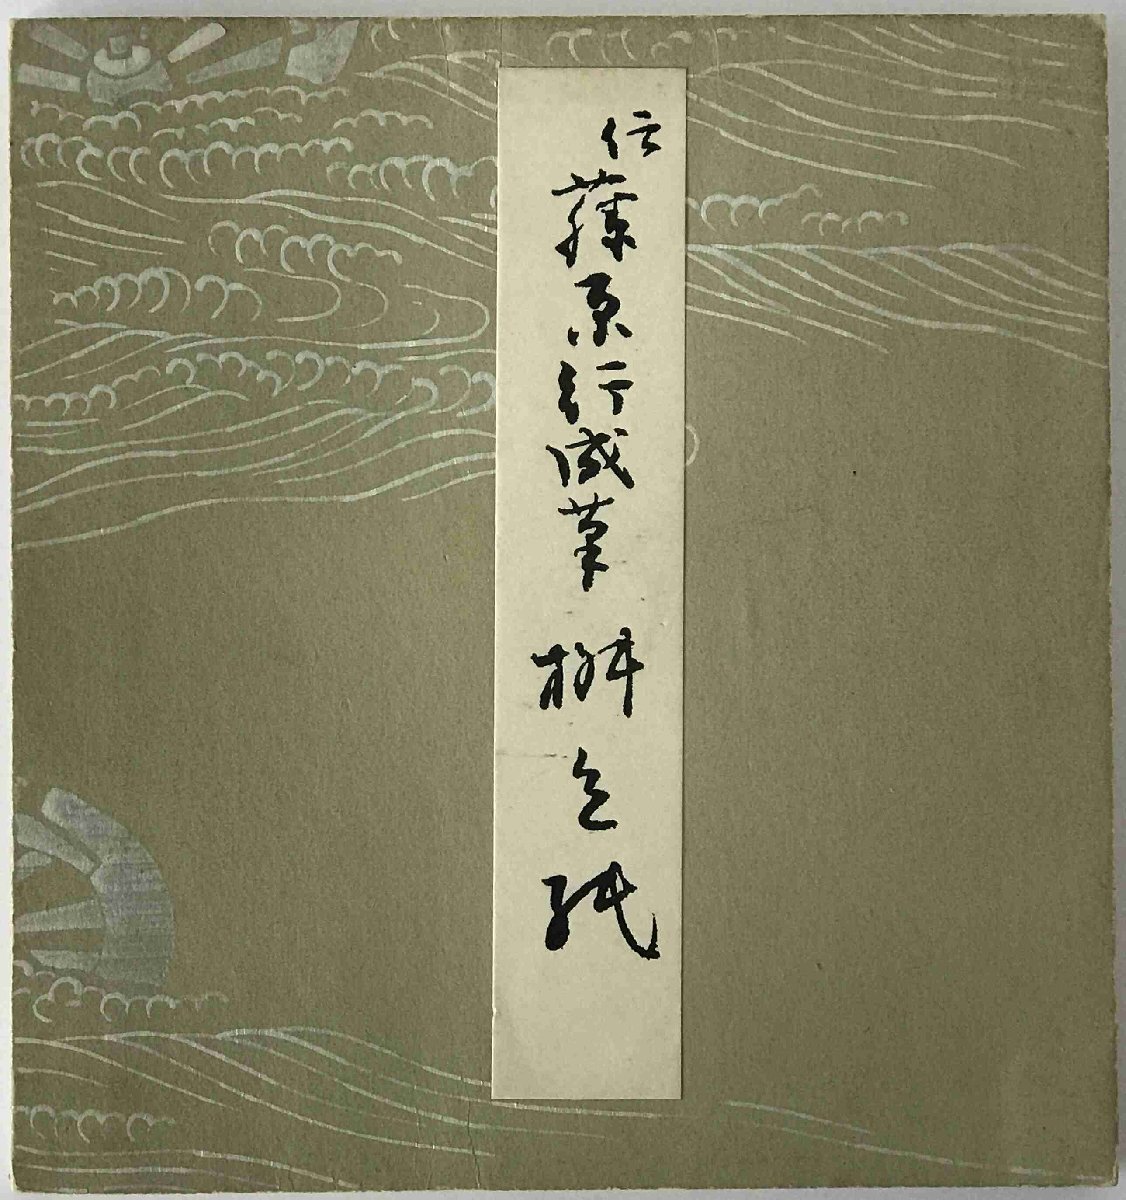 伝藤原行成筆 桝色紙